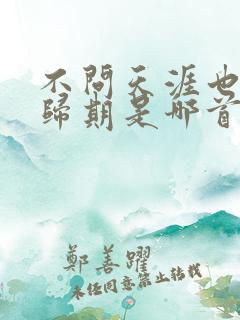 不問天涯也
歸期是哪首
鄭善躍
未任同意禁止轉載